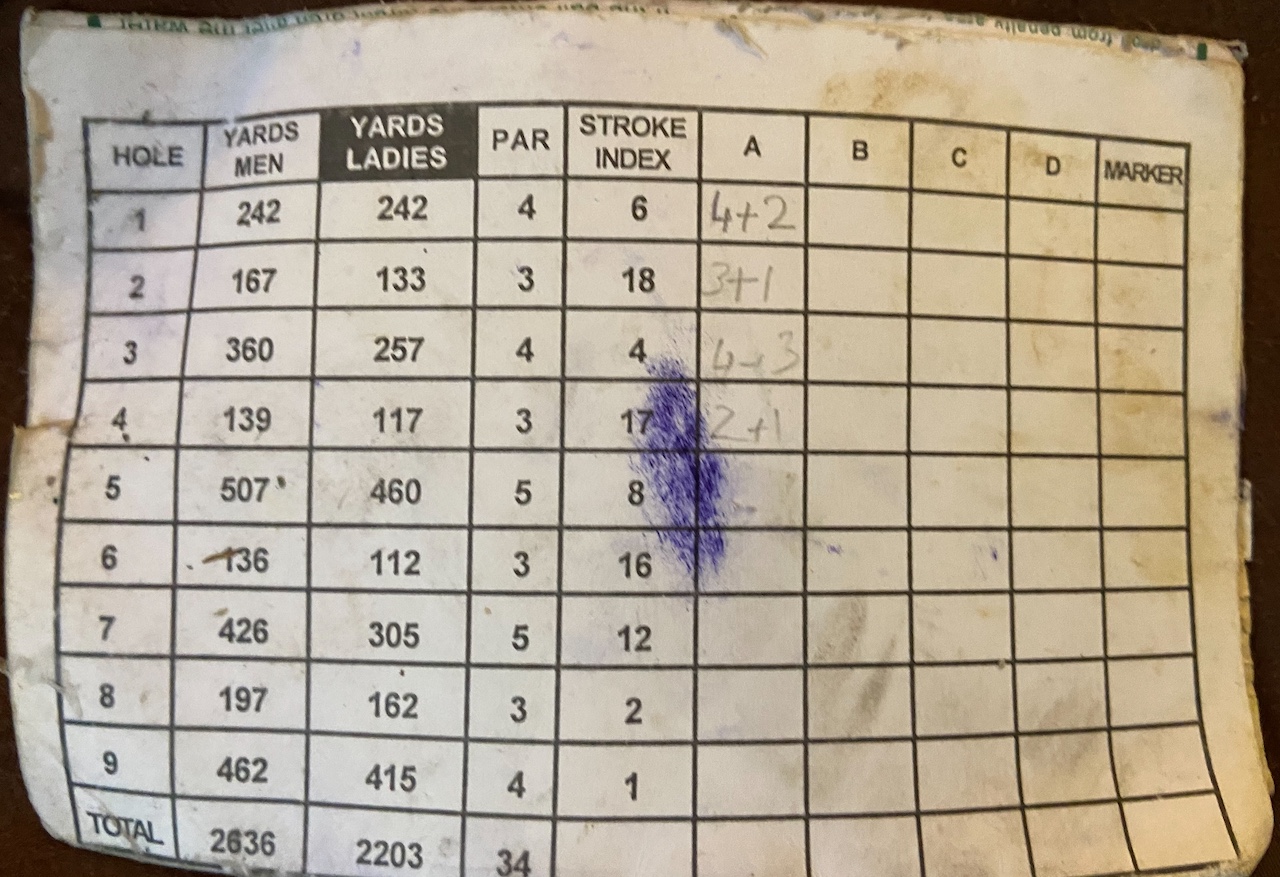 from penalty area
HOLE YARDS MEN YARDS LADIES PAR STROKE INDEX A B C D MARKER
1 242 242 4 6 4+2
2 167 133 3 18 3+1
3 360 257 4 4 4+3
4 139 117 3 17 2+1
5 507 460 5 8
6 136 112 3 16
7 426 305 5 12
8 197 162 3 2
9 462 415 4 1
TOTAL 2636 2203 34